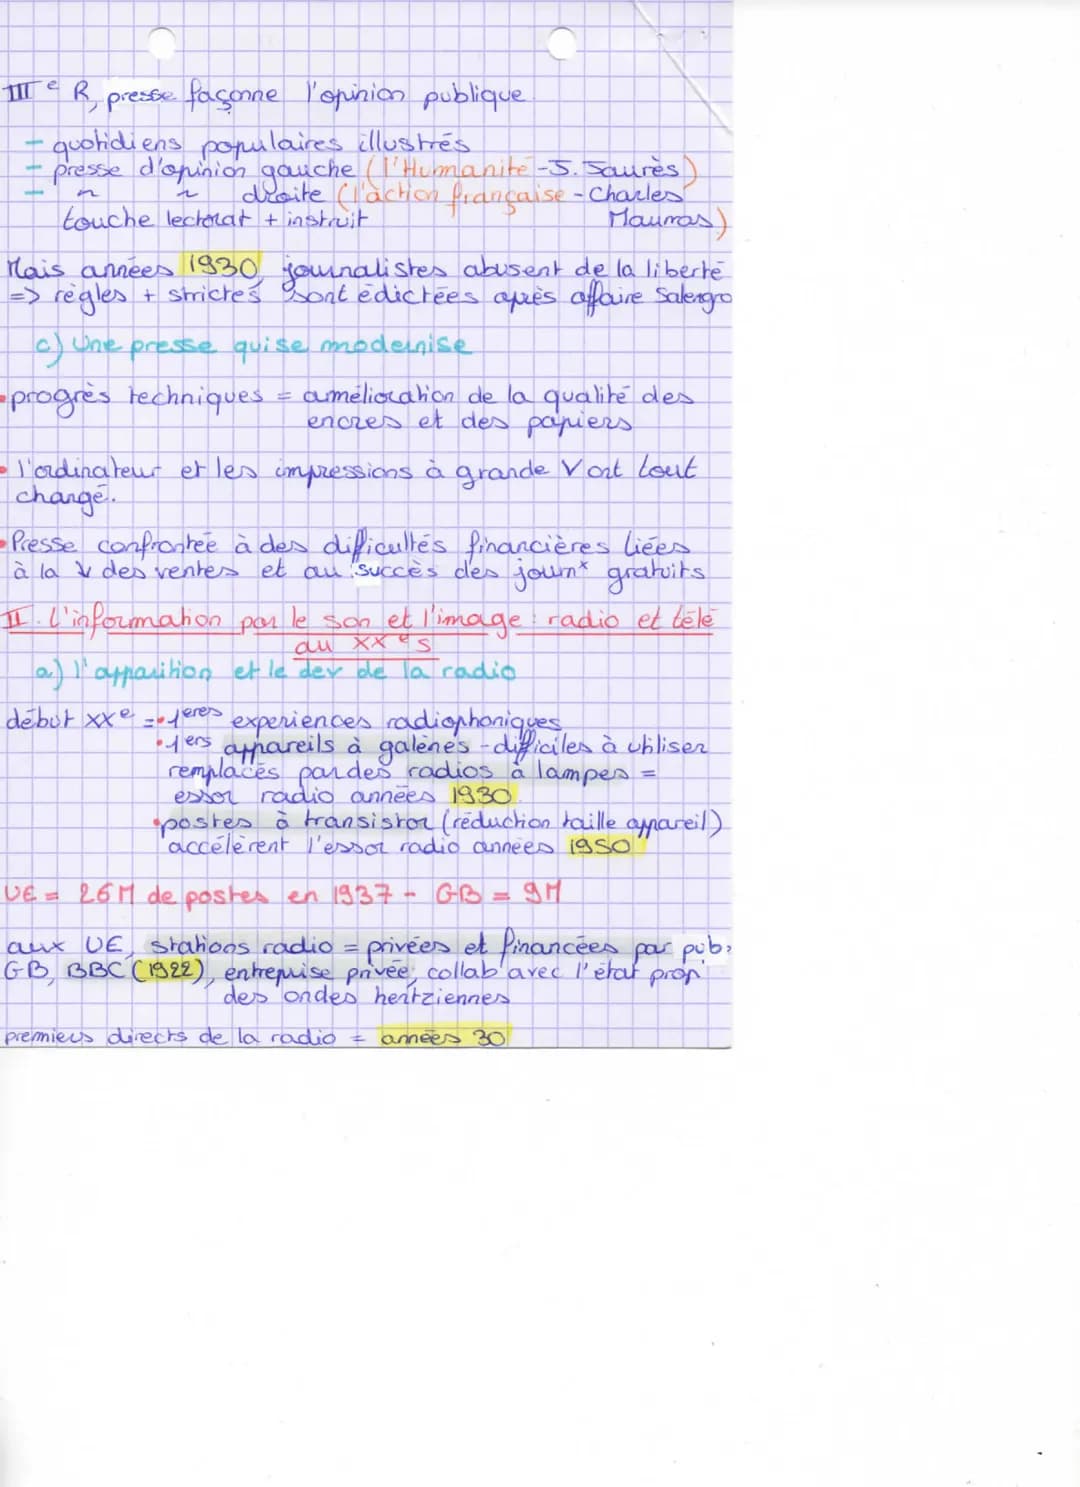 IIIe R, presse façonne l'opinion publique.
- quotidiens populaires illustrés
- presse d'opinion gauche (l'Humanité - J. Jaurès)
- " " droite (l'action française - Charles
touche lectorat + instruit Maurras)
Mais années 1930, journalistes abusent de la liberté
=> règles + strictes sont édictées après affaire Salengro
c) Une presse qui se modernise
• progrès techniques = amélioration de la qualité des
encres et des papiers
• l'ordinateur et les impressions à grande V ont tout
changé.
• Presse confrontée à des difficultés financières liées
à la ↓ des ventes et au succès des journx gratuits
II. L'information par le son et l'image : radio et télé
au XXe s
a) l'apparition et le dev de la radio
début XXe = • 1eres experiences radiophoniques
• 1ers appareils à galènes - difficiles à utiliser
remplacés par des radios à lampes =
essor radio années 1930.
• postes à transistor (réduction taille appareil)
accélèrent l'essor radio années 1950
UE = 26M de postes en 1937 - GB = 9M
aux UE, stations radio = privées et financées par pub.
GB, BBC (1922), entreprise privée, collab avec l'état prop.
des ondes hertziennes
premiers directs de la radio = années 30